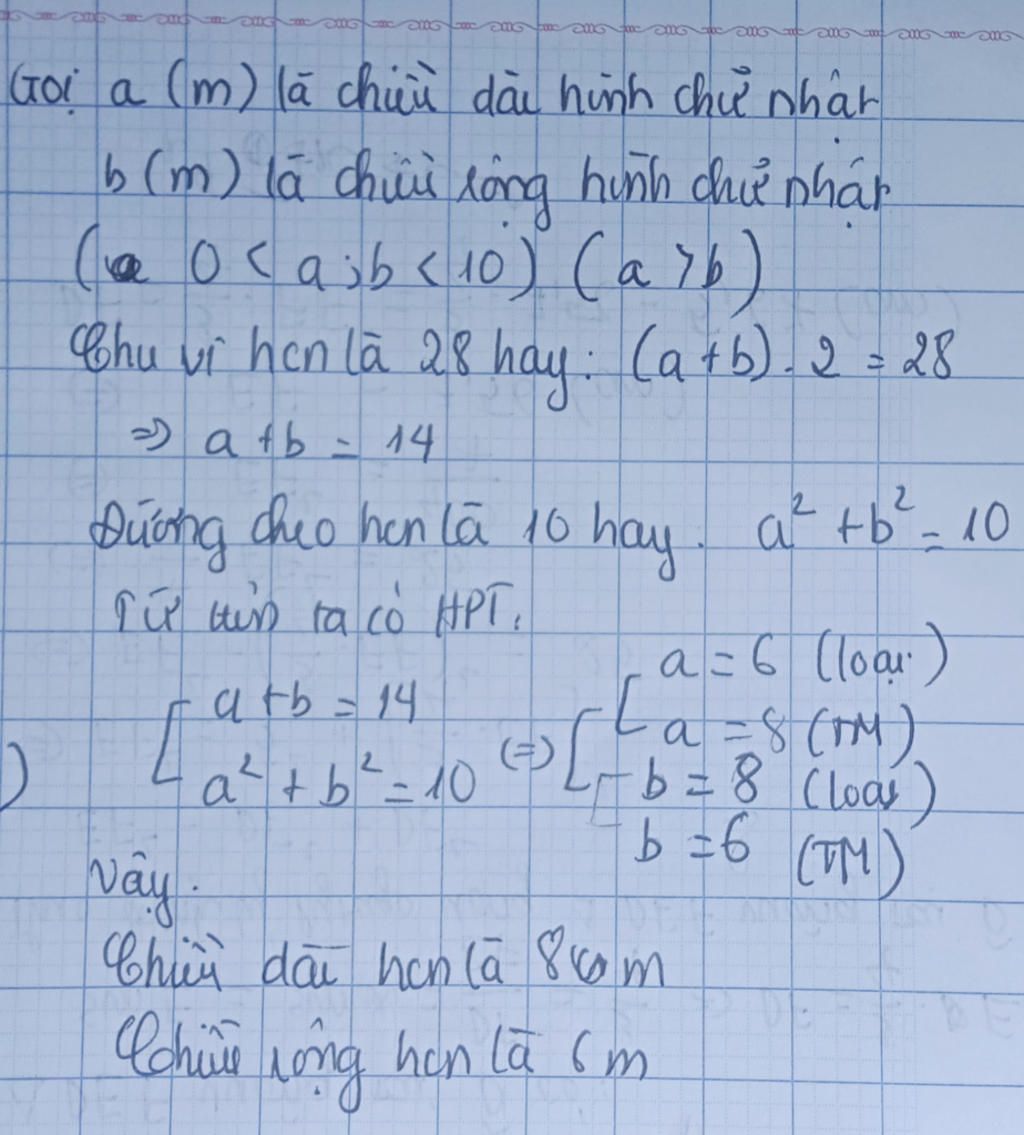 Gọi a (m) là chiều dài hình chữ nhật
b (m) là chiều rộng hình chữ nhật
( 0 < a ; b < 10 ) ( a > b )
Chu vi hcn là 28 hay : (a + b) . 2 = 28
=> a + b = 14
Đường chéo hcn là 10 hay . a² + b² = 10
Từ trên ta có HPT.
a = 6 (loại)
[ a + b = 14 [ [ a = 8 (TM)
) a² + b² = 10 (=) [ b = 8 (loại)
b = 6 (TM)
Vậy.
Chiều dài hcn là 8 m
Chiều rộng hcn là 6 m